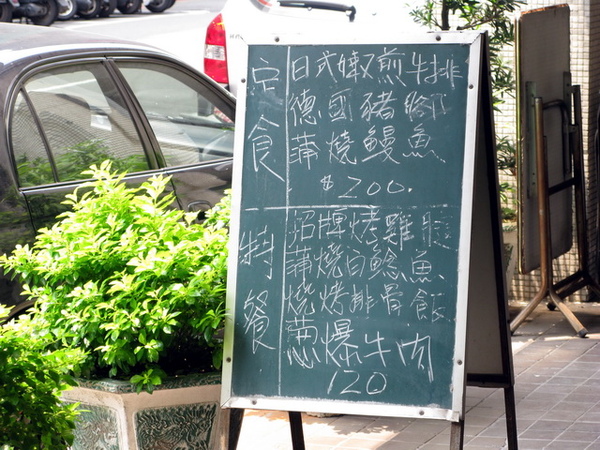 定食
日式嫩煎牛排
德國豬腳
蒲燒鰻魚
$200.
特餐
招牌烤雞腿
蒲燒白鯰魚
燒烤排骨飯
蔥爆牛肉
120